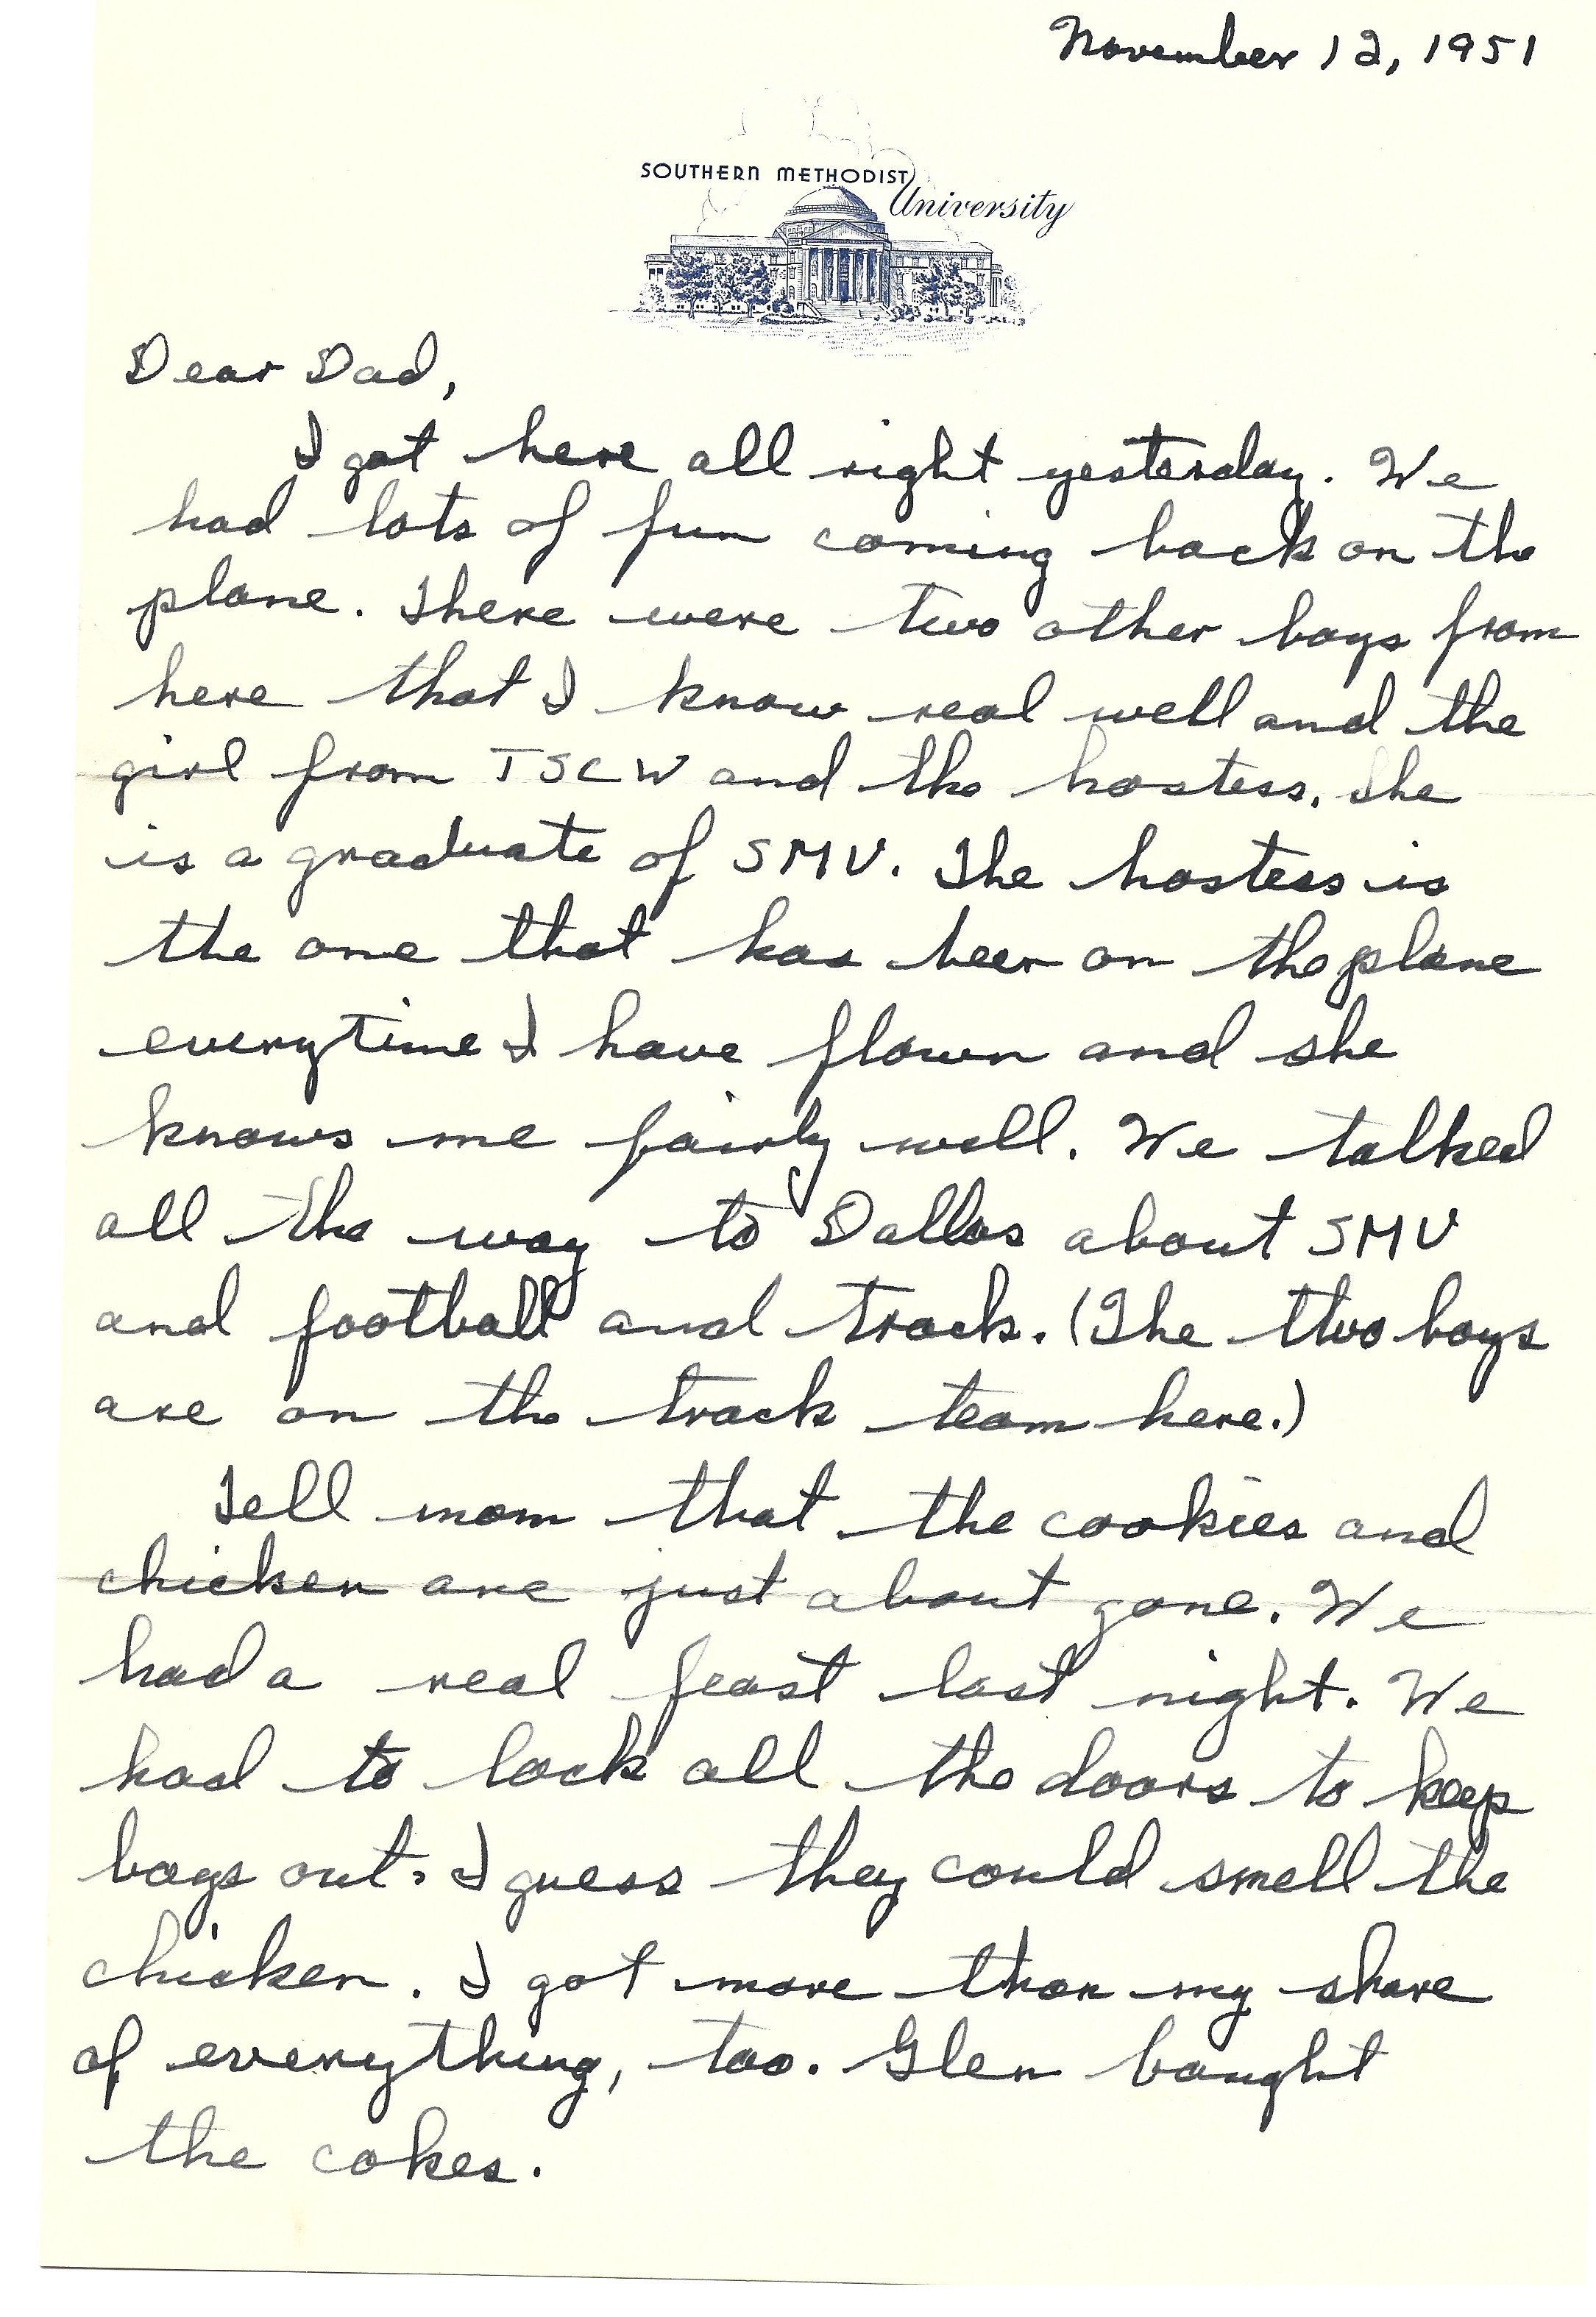 November 12, 1951
SOUTHERN METHODIST
University
Dear Dad,
I got here all right yesterday. We
had lots of fun coming back on the
plane. There were two other boys from
here that I know real well and the
girl from TSCW and the hostess. She
is a graduate of SMU. The hostess is
the one that has been on the plane
everytime I have flown and she
knows me fairly well. We talked
all the way to Dallas about SMU
and football and track. (The two boys
are on the track team here.)
Tell mom that the cookies and
chicken are just about gone. We
had a real feast last night. We
had to lock all the doors to keep
boys out. I guess they could smell the
chicken. I got more than my share
of everything, too. Glen bought
the cokes.